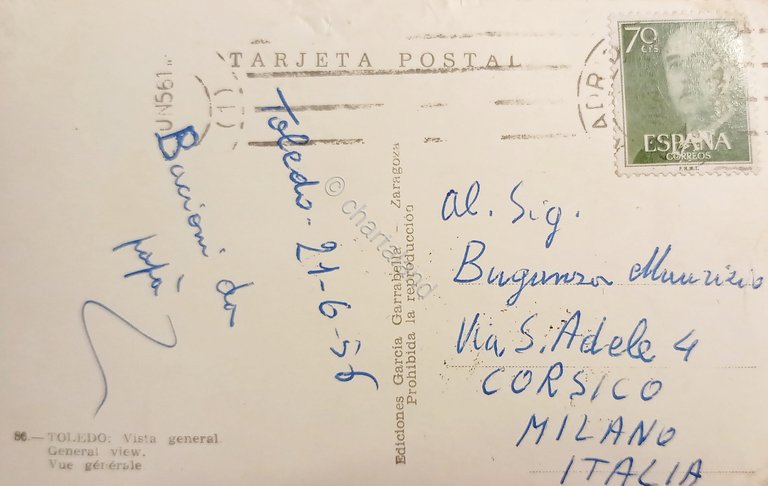 TARJETA POSTAL
70
CTS
ESPAÑA
CORREOS
F.N.M.T.
UN561
Toledo-21-6-56
Bacioni da
papà
© charta
Ediciones García Garrabella - Zaragoza
Prohibida la reproducción
Al. Sig.
Buganza Maurizio
Via S. Adele 4
CORSICO
MILANO
ITALIA
86.—TOLEDO: Vista general
General view.
Vue générale